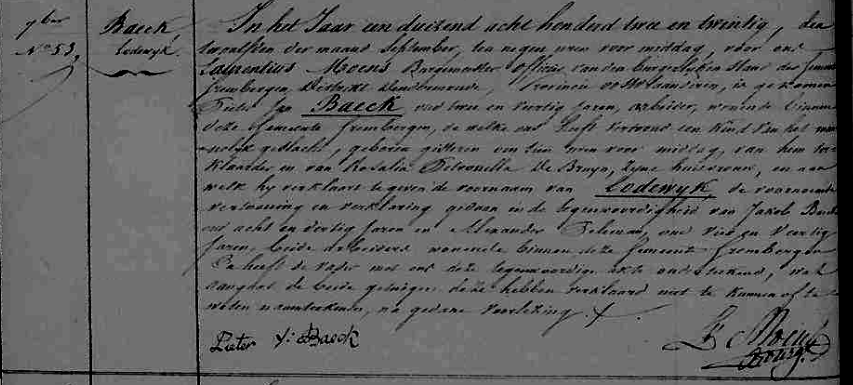 7ber
N° 53,
Baeck,
Lodewyk.
In het Jaar een duizend acht honderd twee en twintig, den
twaalfden der maand September, ten negen uren voor middag, voor ons
Laurentius Moens Burgemeester Officier van den burgerlyken Stand der Gemeente
Grembergen, District Dendermonde, Provincie Oostvlaanderen, is gekomen
Pieter Jan Baeck oud twee en veertig Jaren, arbeider, wonende binnen
deze Gemeente Grembergen, de welke ons heeft vertoond een Kind van het man-
nelyk geslacht, geboren gisteren om tien uren voor middag, van hem ver-
klaarder, en van Rosalia Petronella De Bruyn, zyne huisvrouw, en aan
welk hy verklaart te geven de voornaam van Lodewyk, de voornoemde
vertooning en verklaring gedaan in de tegenwoordigheid van Jakob
oud acht en dertig Jaren en Alexander oud vier en veertig
Jaren, beide arbeiders wonende binnen deze Gemeente Grembergen
En heeft de vader met ons deze tegenwoordige akte onderteekend,
aangaande de beide getuigen deze hebben verklaard niet te kunnen of te
weten naamteekenen, na gedane voorlezing.
Pieter J: Baeck
L Moens
Bourgr.